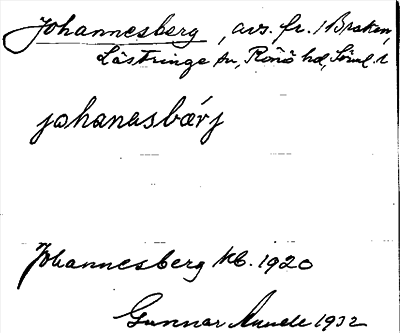 Johannesberg, avs. fr. Braken,
Lästringe sn, Rönö hd, Söml. l
johanasbǽrj
Johannesberg kb. 1920
Gunnar 1932